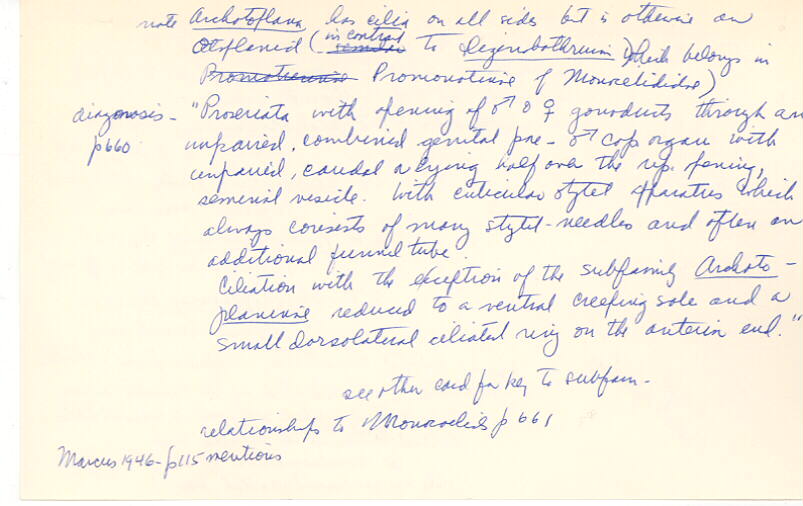 note Archotoplana has cilia on all sides but is otherwise an
Otoplanid (in contrast to Digenobothrium which belongs in
Promonotinae of Monocelididae)
diagnosis - "Proseriata with opening of ♂ & ♀ gonoducts through an
p660 unpaired, combined genital pore - ♂ cop organ with
unpaired, caudal or lying half over the
seminal vesicle. With cuticular stylet apparatus which
always consists of many stylet-needles and often an
additional funnel tube.
Ciliation with the exception of the subfamily Archoto-
planinae reduced to a ventral creeping sole and a
small dorsolateral ciliated ring on the anterior end."
see other card for key to subfam-
relationships to Monocelids p 661
Marcus 1946 - p115 mentions